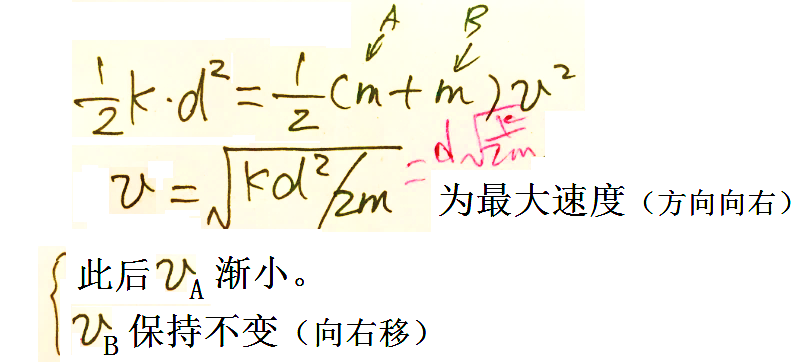 A B
½k·d²=½(m+m)v²
v=√(kd²/2m) =d√(k/2m) 为最大速度（方向向右）
此后v_A渐小。
v_B保持不变（向右移）